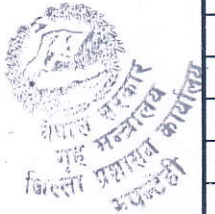 नेपाल सरकार
गृह मन्त्रालय
जिल्ला प्रशासन कार्यालय
रूपन्देही